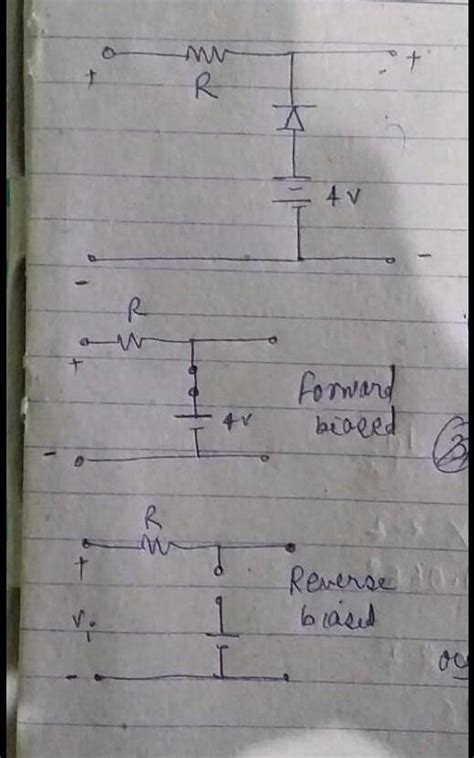 + R - +
4V
- -
R
+
4V
Forward
biased
-
3
R
+
Reverse
biased
Vi
-